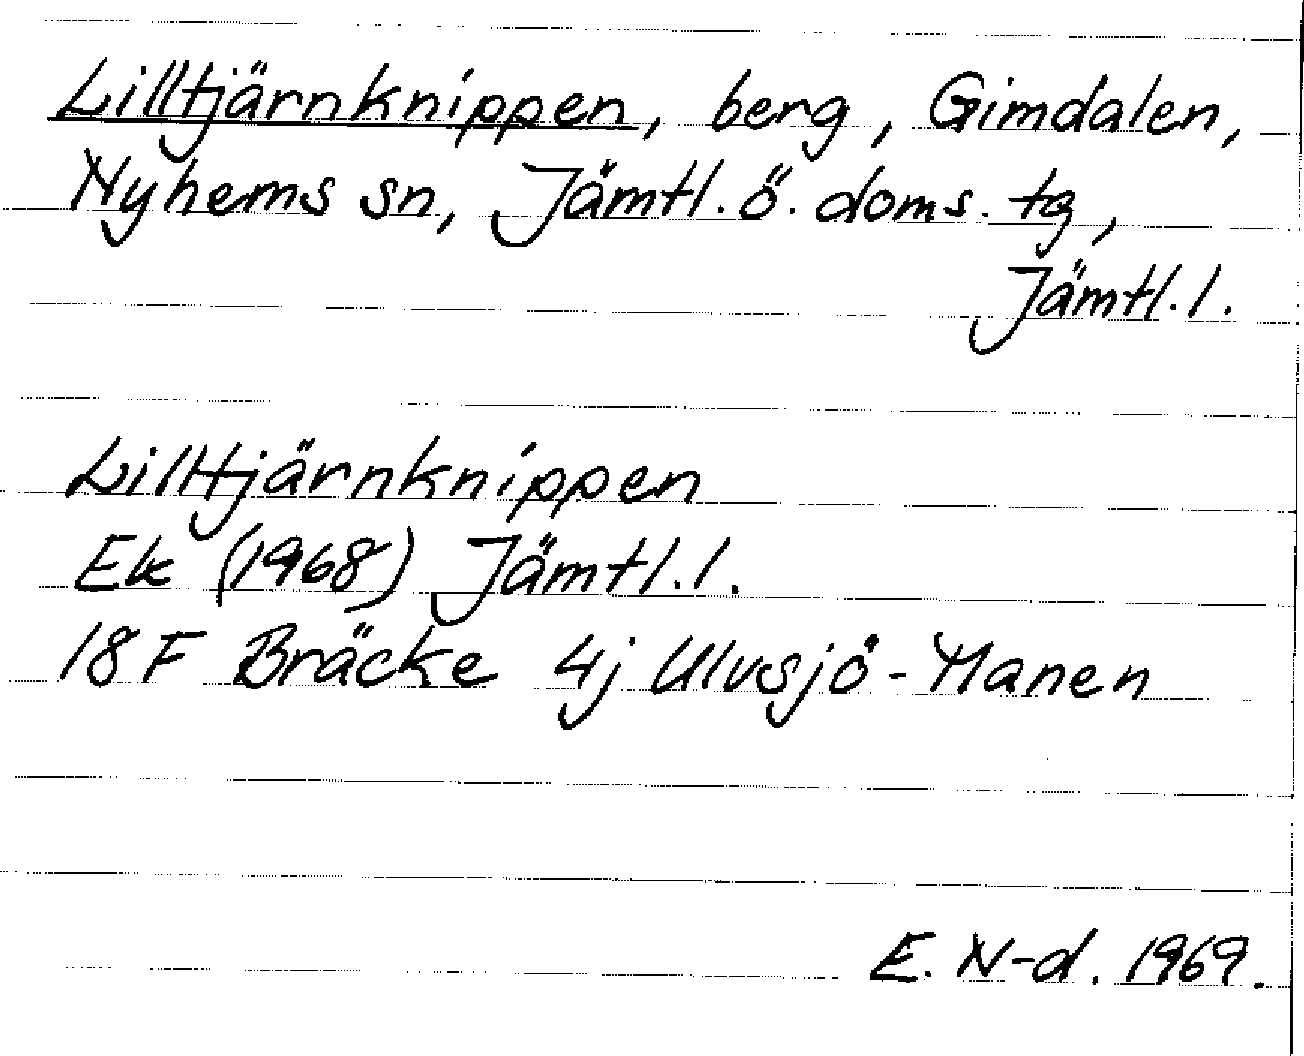 Lilltjärnknippen, berg, Gimdalen,
Nyhems sn, Jämtl. ö. doms. tg,
Jämtl. l.
Lilltjärnknippen
Ek (1968) Jämtl. l.
18 F Bräcke 4j Ulvsjö - Manen
E. N-d. 1969.